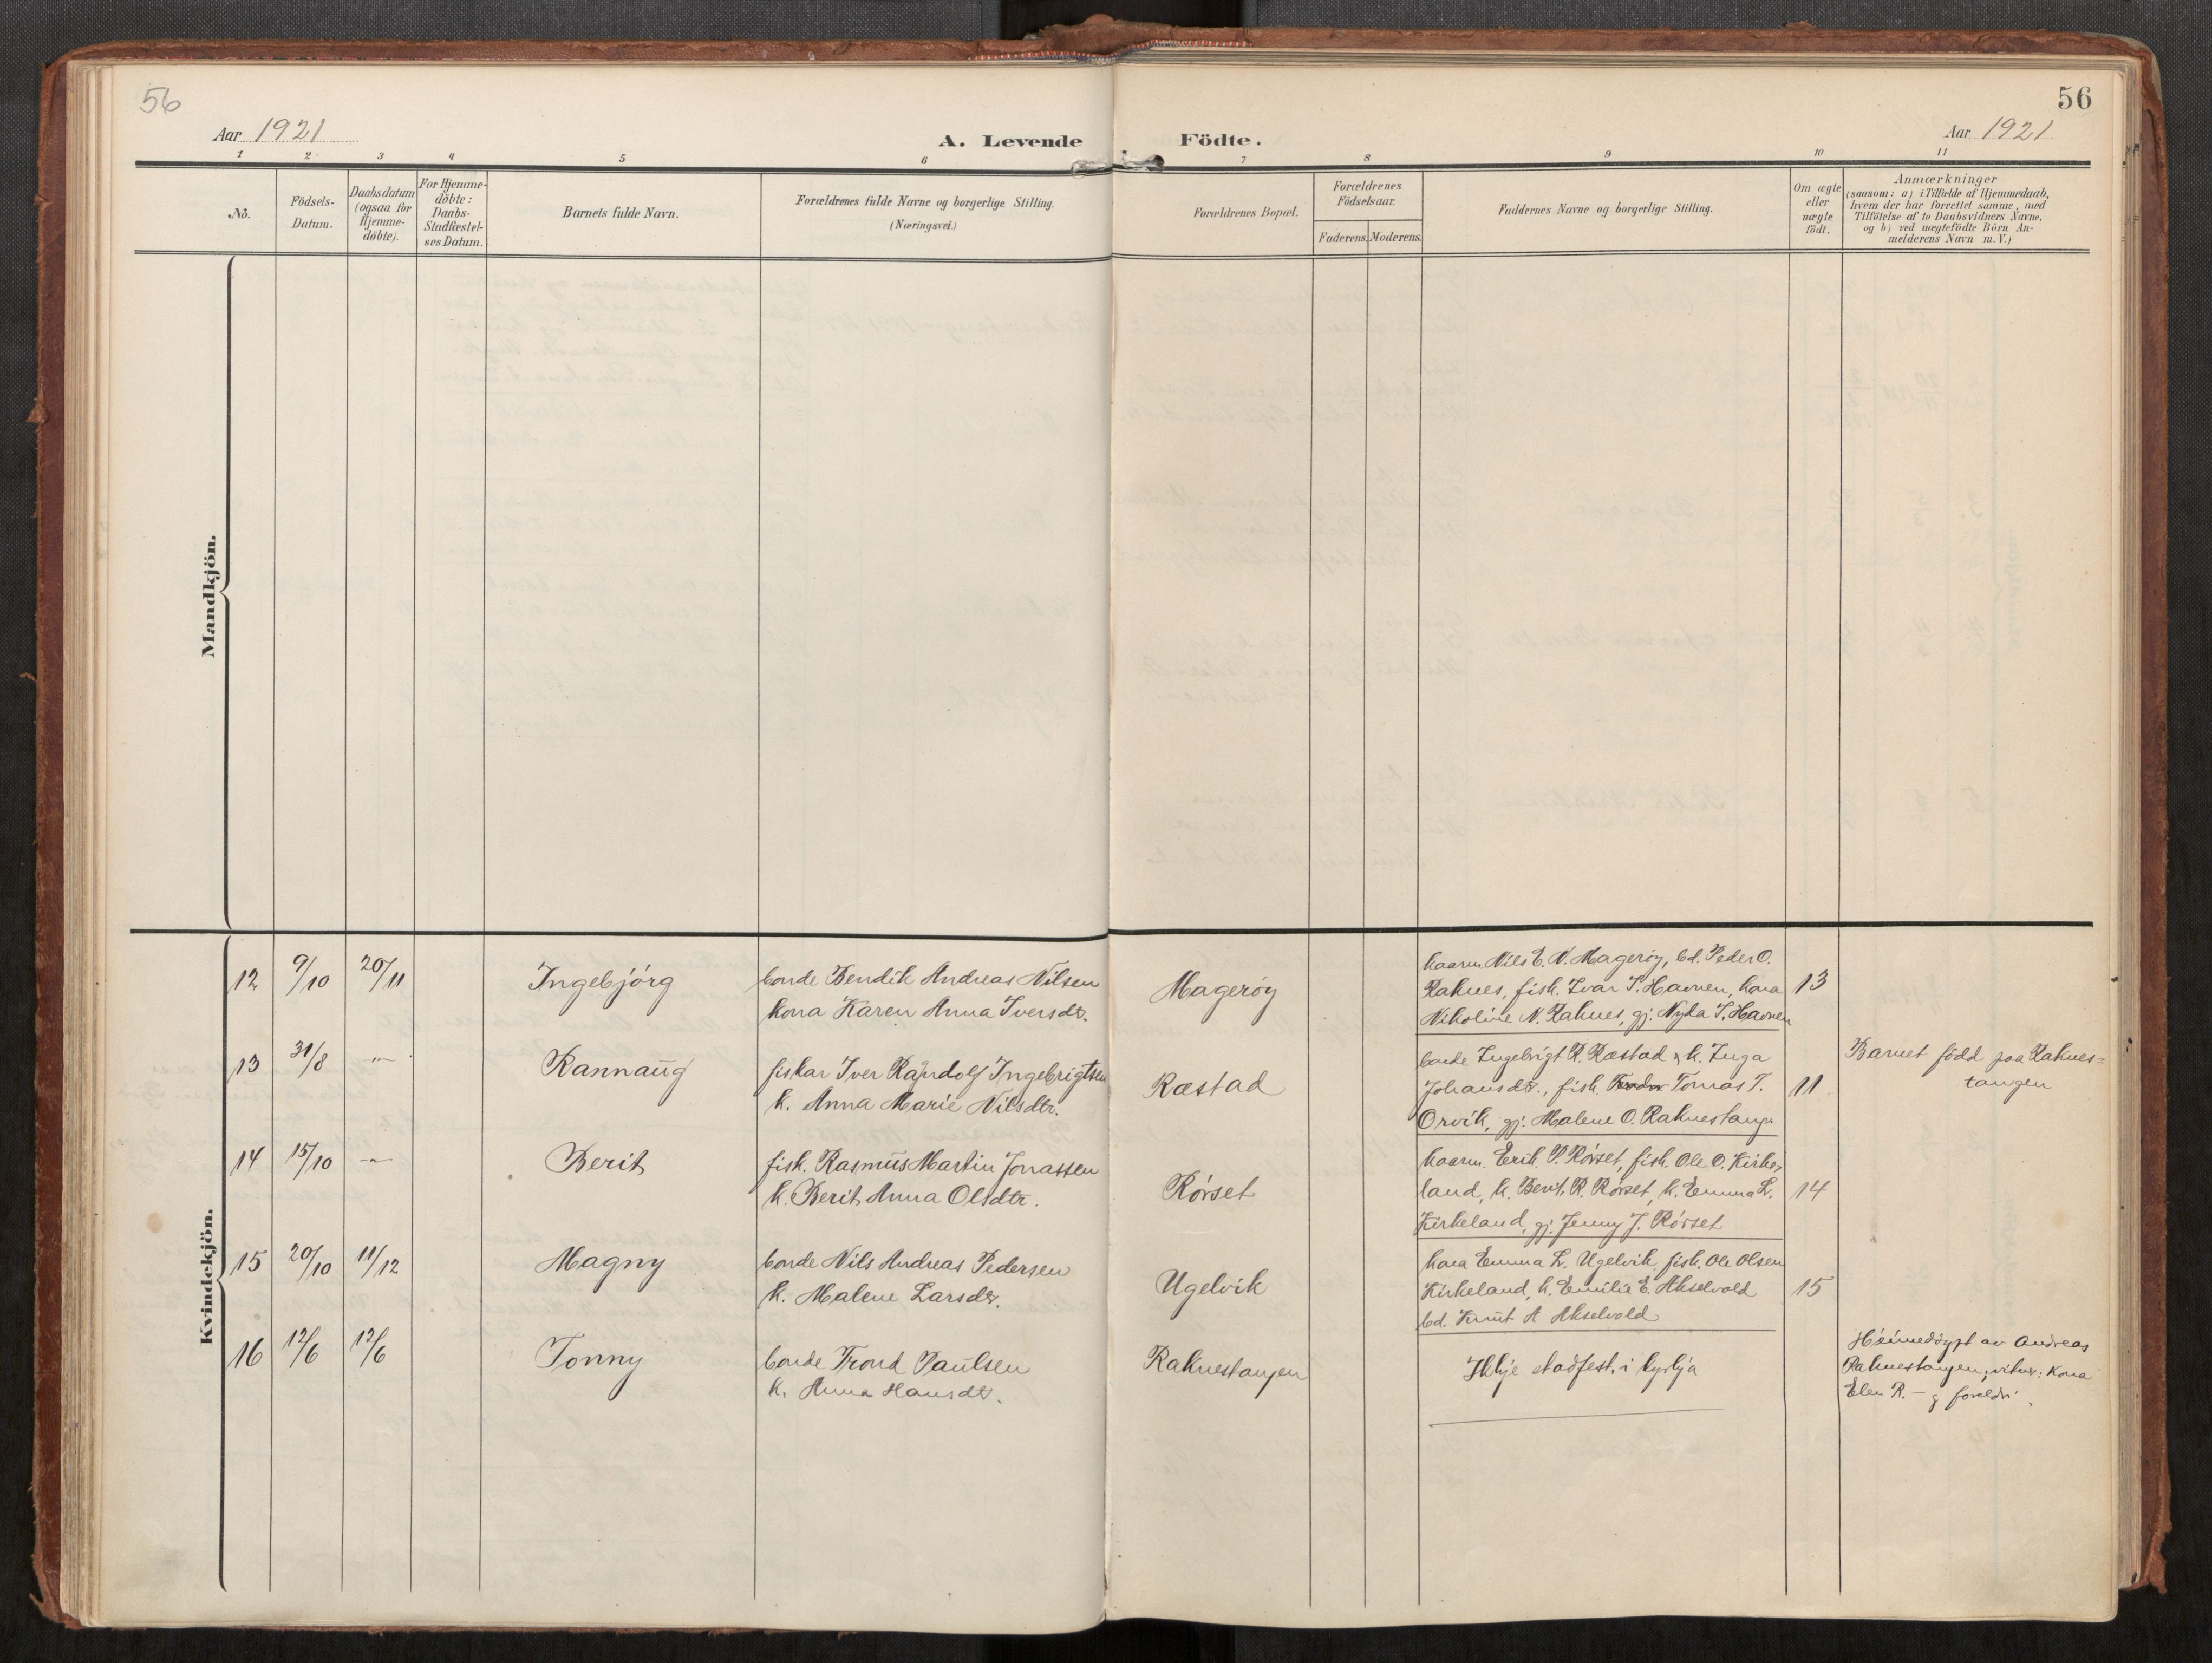 56
56
Aar 1921
A. Levende Födte.
Aar 1921
1 2 3 4 5 6 7 8 9 10 11
No.
Födsels-
Datum.
Daabsdatum
(ogsaa for
Hjemme-
döbte).
For Hjemme-
döbte:
Daabs-
Stadfestel-
ses Datum.
Barnets fulde Navn.
Forældrenes fulde Navne og borgerlige Stilling.
(Næringsvei.)
Forældrenes Bopæl.
Forældrenes
Födselsaar.
Faderens. Moderens.
Faddernes Navne og borgerlige Stilling.
Om ægte
eller
uægte
födt.
Anmærkninger
(saasom: a) i Tilfælde af Hjemmedaab,
hvem der har forrettet samme, med
Tilföielse af to Daabsvidners Navne,
og b) ved uægtefödte Börn An-
melderens Navn m. V.)
Mandkjön.
Kvindekjön.
12 9/10 20/11 Ingebjörg
bonde Bendik Andreas Nilsen
kona Karen Anna Iversdr.
Magerøy
kaarm. Nils E. N. Magerøy, bd. Peder O.
Raknes, fisk. Ivar S. Havnen, kona
Nikoline N. Raknes, gj. Nyda I. Havnen
13
13 31/8 -"- Rannaug
fiskar Iver Randolf Ingebrigtsen
k. Anna Marie Nilsdtr.
Ræstad
bonde Ingebrigt R. Ræstad & k. Inga
Johansdtr., fisk. Tomas T.
Orvik, gj. Malene O. Raknestang.
11
Barnet född paa Raknes=
tangen
14 15/10 -"- Berit
fisk. Rasmus Martin Jonassen
k. Berit Anna Olsdtr.
Rörset
kaarm. Erik P. Rörset, fisk. Ole O. Kirke-
land, k. Berit R. Rörset, k. Emma L.
Kirkeland, gj. Jenny J. Rörset
14
15 20/10 11/12 Magny
bonde Nils Andreas Pedersen
k. Malene Larsdr.
Ugelvik
kona Emma L. Ugelvik, fisk. Ole Olsen
Kirkeland, k. Emilie E. Akselvold
bd. Knut A Akselvold
15
16 12/6 12/6 Tonny
bonde Trond Paulsen
k. Anna Hansdr.
Raknestangen
Ikkje stadfest. i kyrkja
Heimedöypt av Andreas
Raknestangen; vitner: kona
Elen R. - g foreldri.